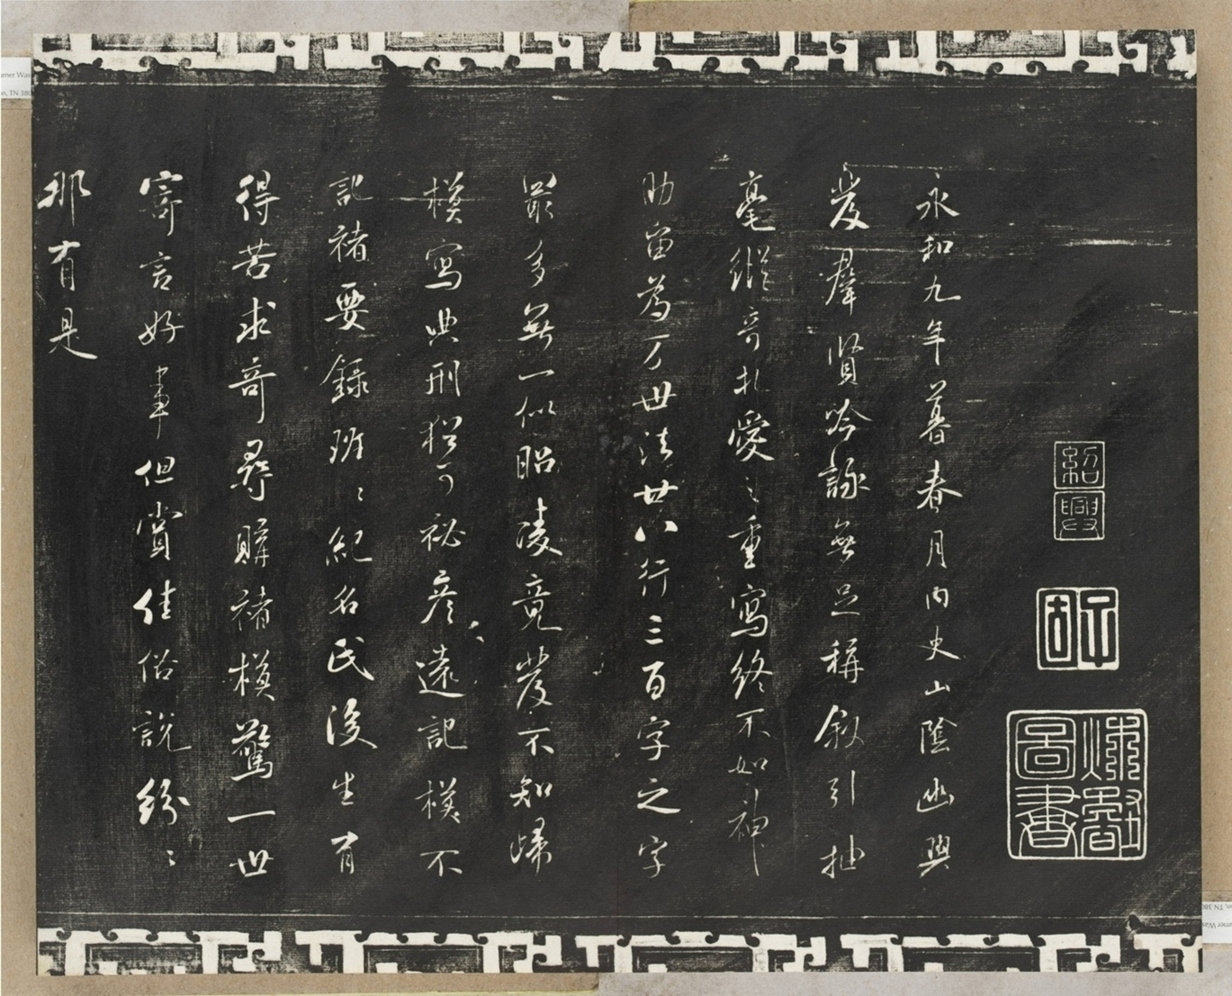 紹興
永和九年暮春月内史山陰幽興
發羣賢吟詠無足稱叙引抽
毫縱奇札愛之重寫終不如神
助留為万世法廿八行三百字之字
最多無一似昭陵竟發不知歸
模寫典刑猶可祕彦遠記模不
記褚要録班班紀名氏後生有
得苦求奇尋購褚模驚一世
寄言好事但賞佳俗說紛紛
那有是